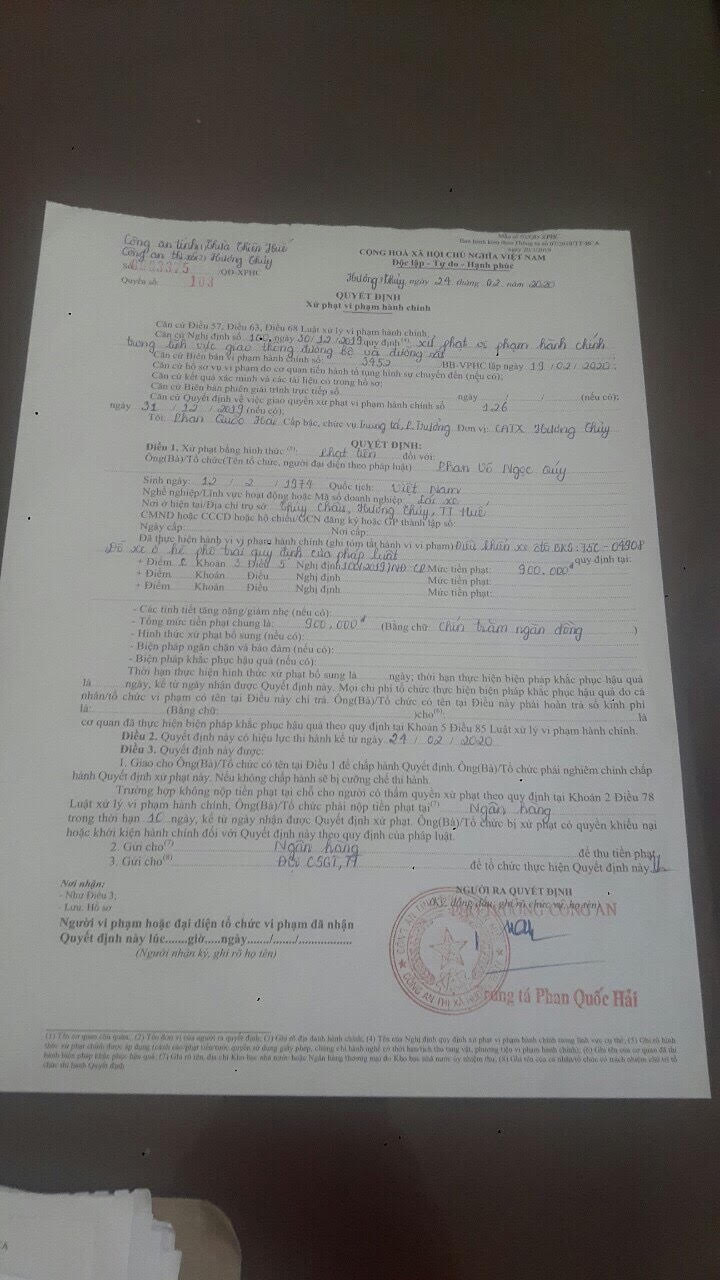 Công an tỉnh Thừa Thiên Huế
Công an thị xã Hương Thủy
Số /QĐ-XPHC
Quyển số: 103
CỘNG HOÀ XÃ HỘI CHỦ NGHĨA VIỆT NAM
Độc lập - Tự do - Hạnh phúc
Hương Thủy, ngày 24 tháng 02 năm 2020
QUYẾT ĐỊNH
Xử phạt vi phạm hành chính
Căn cứ Điều 57, Điều 63, Điều 68 Luật xử lý vi phạm hành chính;
Căn cứ Nghị định số 100, ngày 30/12/2019 quy định (4) xử phạt vi phạm hành chính
trong lĩnh vực giao thông đường bộ và đường sắt
Căn cứ Biên bản vi phạm hành chính số: 3452 BB-VPHC lập ngày 19/02/2020;
Căn cứ hồ sơ vụ vi phạm do cơ quan tiến hành tố tụng hình sự chuyển đến (nếu có);
Căn cứ kết quả xác minh và các tài liệu có trong hồ sơ;
Căn cứ Biên bản phiên giải trình trực tiếp số ngày / / (nếu có);
Căn cứ Quyết định về việc giao quyền xử phạt vi phạm hành chính số 126
ngày 31/12/2019 (nếu có);
Tôi: Phan Quốc Hải Cấp bậc, chức vụ Trung tá, P. Trưởng Đơn vị: CATX Hương Thủy
QUYẾT ĐỊNH:
Điều 1. Xử phạt bằng hình thức (5): Phạt tiền đối với:
Ông(Bà)/Tổ chức(Tên tổ chức, người đại diện theo pháp luật) Phan Võ Ngọc Quý
Sinh ngày: 12/2/1974 Quốc tịch: Việt Nam
Nghề nghiệp/Lĩnh vực hoạt động hoặc Mã số doanh nghiệp Lái xe
Nơi ở hiện tại/Địa chỉ trụ sở: Thủy Châu, Hương Thủy, TT Huế
CMND hoặc CCCD hoặc hộ chiếu/GCN đăng ký hoặc GP thành lập số:
Ngày cấp: Nơi cấp:
Đã thực hiện hành vi vi phạm hành chính (ghi tóm tắt hành vi vi phạm) Điều khiển xe ôtô BKS: 75C - 04908
Đỗ xe ở hè phố trái quy định của pháp luật quy định tại:
+ Điểm Khoản 3 Điều 5 Nghị định 100/2019/NĐ CP Mức tiền phạt: 900.000đ
+ Điểm Khoản Điều Nghị định Mức tiền phạt:
+ Điểm Khoản Điều Nghị định Mức tiền phạt:
- Các tình tiết tăng nặng/giảm nhẹ (nếu có):
- Tổng mức tiền phạt chung là: 900.000đ (Bằng chữ: Chín trăm ngàn đồng )
- Hình thức xử phạt bổ sung (nếu có):
- Biện pháp ngăn chặn và bảo đảm (nếu có):
- Biện pháp khắc phục hậu quả (nếu có):
Thời hạn thực hiện hình thức xử phạt bổ sung là ngày; thời hạn thực hiện biện pháp khắc phục hậu quả
là ngày, kể từ ngày nhận được Quyết định này. Mọi chi phí tổ chức thực hiện biện pháp khắc phục hậu quả do cá
nhân/tổ chức vi phạm có tên tại Điều này chi trả. Ông(Bà)/Tổ chức có tên tại Điều này phải hoàn trả số kinh phí
là: (Bằng chữ: )cho(6): là
cơ quan đã thực hiện biện pháp khắc phục hậu quả theo quy định tại Khoản 5 Điều 85 Luật xử lý vi phạm hành chính.
Điều 2. Quyết định này có hiệu lực thi hành kể từ ngày 24/02/2020
Điều 3. Quyết định này được:
1. Giao cho Ông(Bà)/Tổ chức có tên tại Điều 1 để chấp hành Quyết định. Ông(Bà)/Tổ chức phải nghiêm chỉnh chấp
hành Quyết định xử phạt này. Nếu không chấp hành sẽ bị cưỡng chế thi hành.
Trường hợp không nộp tiền phạt tại chỗ cho người có thẩm quyền xử phạt theo quy định tại Khoản 2 Điều 78
Luật xử lý vi phạm hành chính, Ông(Bà)/Tổ chức phải nộp tiền phạt tại(7) Ngân hàng
trong thời hạn 10 ngày, kể từ ngày nhận được Quyết định xử phạt. Ông(Bà)/Tổ chức bị xử phạt có quyền khiếu nại
hoặc khởi kiện hành chính đối với Quyết định này theo quy định của pháp luật.
2. Gửi cho(7) Ngân hàng để thu tiền phạt
3. Gửi cho(8) Đội CSGT, TT để tổ chức thực hiện Quyết định này
Nơi nhận:
- Như Điều 3;
- Lưu: Hồ sơ
NGƯỜI RA QUYẾT ĐỊNH
(Ký, đóng dấu, ghi rõ chức vụ, họ tên)
PHÓ TRƯỞNG CÔNG AN
Người vi phạm hoặc đại diện tổ chức vi phạm đã nhận
Quyết định này lúc.......giờ.....ngày......./......./..................
(Người nhận ký, ghi rõ họ tên)
Trung tá Phan Quốc Hải